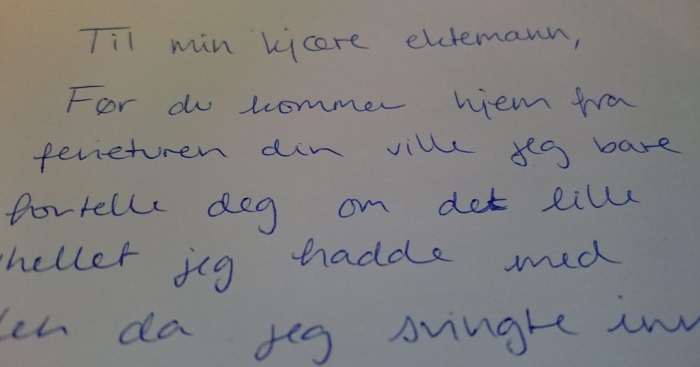 Til min kjære ektemann,
Før du kommer hjem fra
ferieturen din ville jeg bare
fortelle deg om det lille
hellet jeg hadde med
en da jeg svingte inn